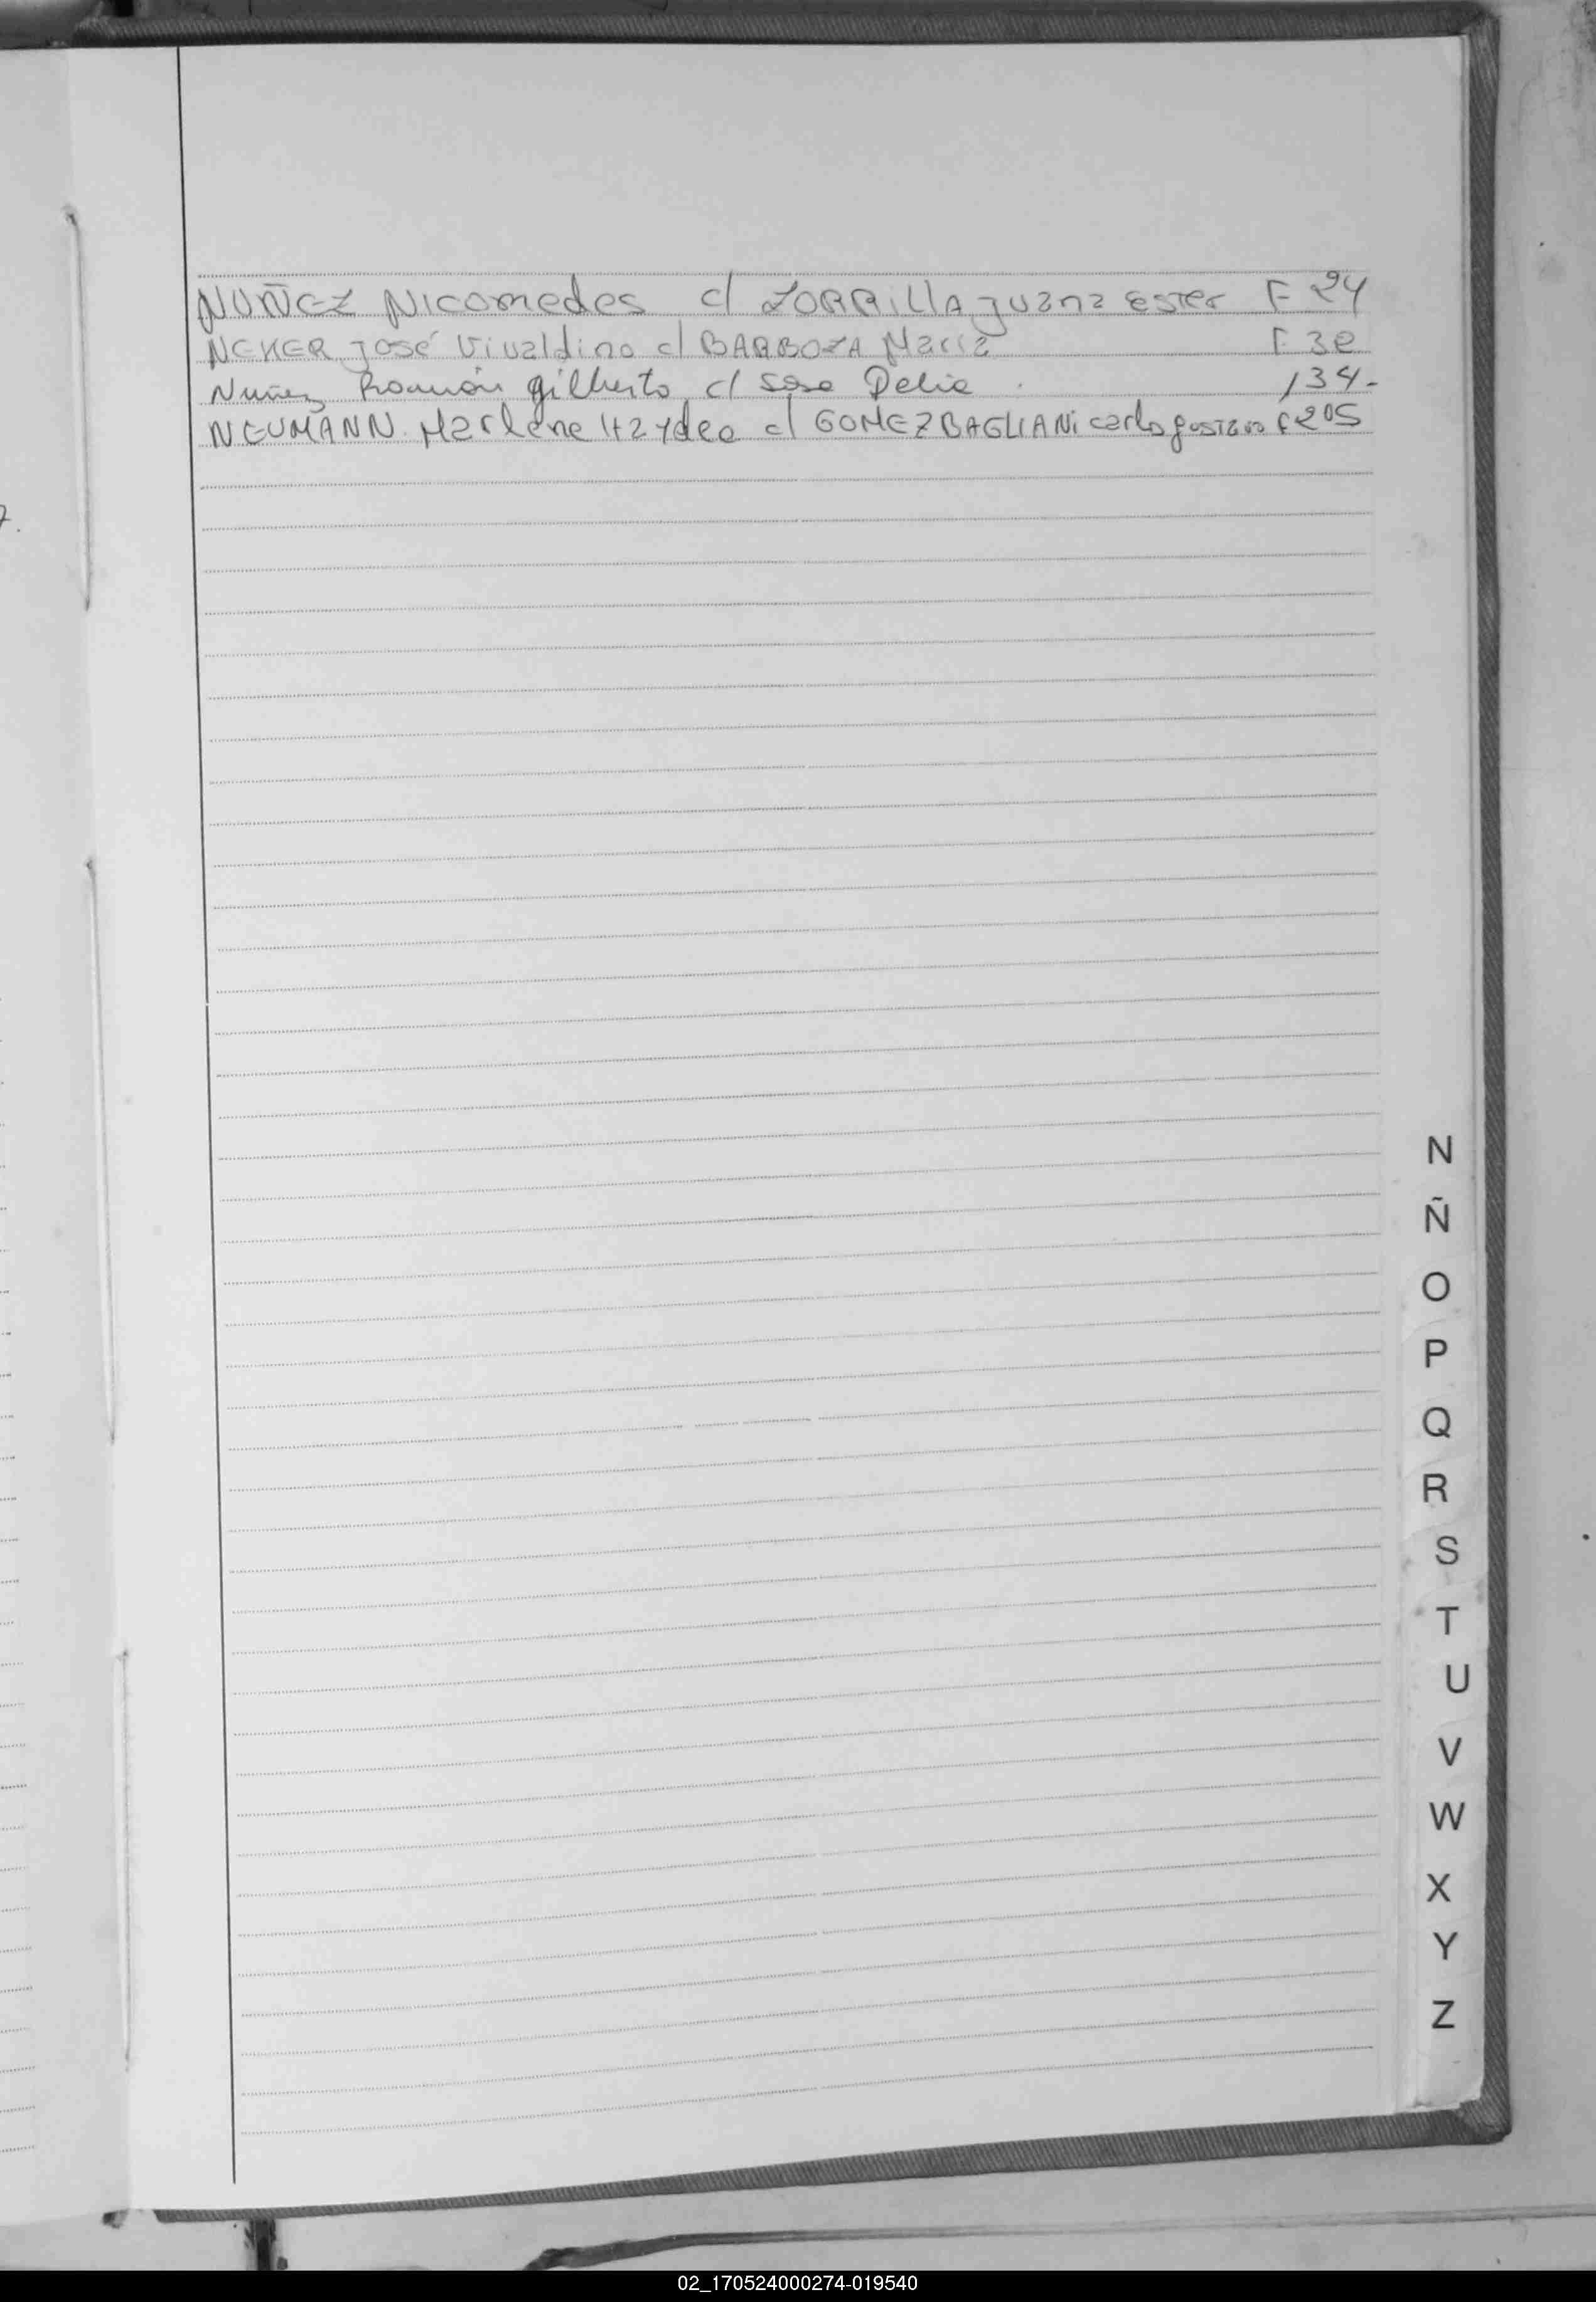 NUÑEZ Nicomedes c/ ZORRILLA Juana Ester F 24
NEKER José Vivaldino c/ BARBOZA Maria F 30
Nuñez Román Gilberto c/ Sosa Delia 134-
NEUMANN Marlene Haydea c/ GOMEZ BAGLIANI Carlos Gustavo F 205
7.
N
Ñ
O
P
Q
R
S
T
U
V
W
X
Y
Z
02_170524000274-019540